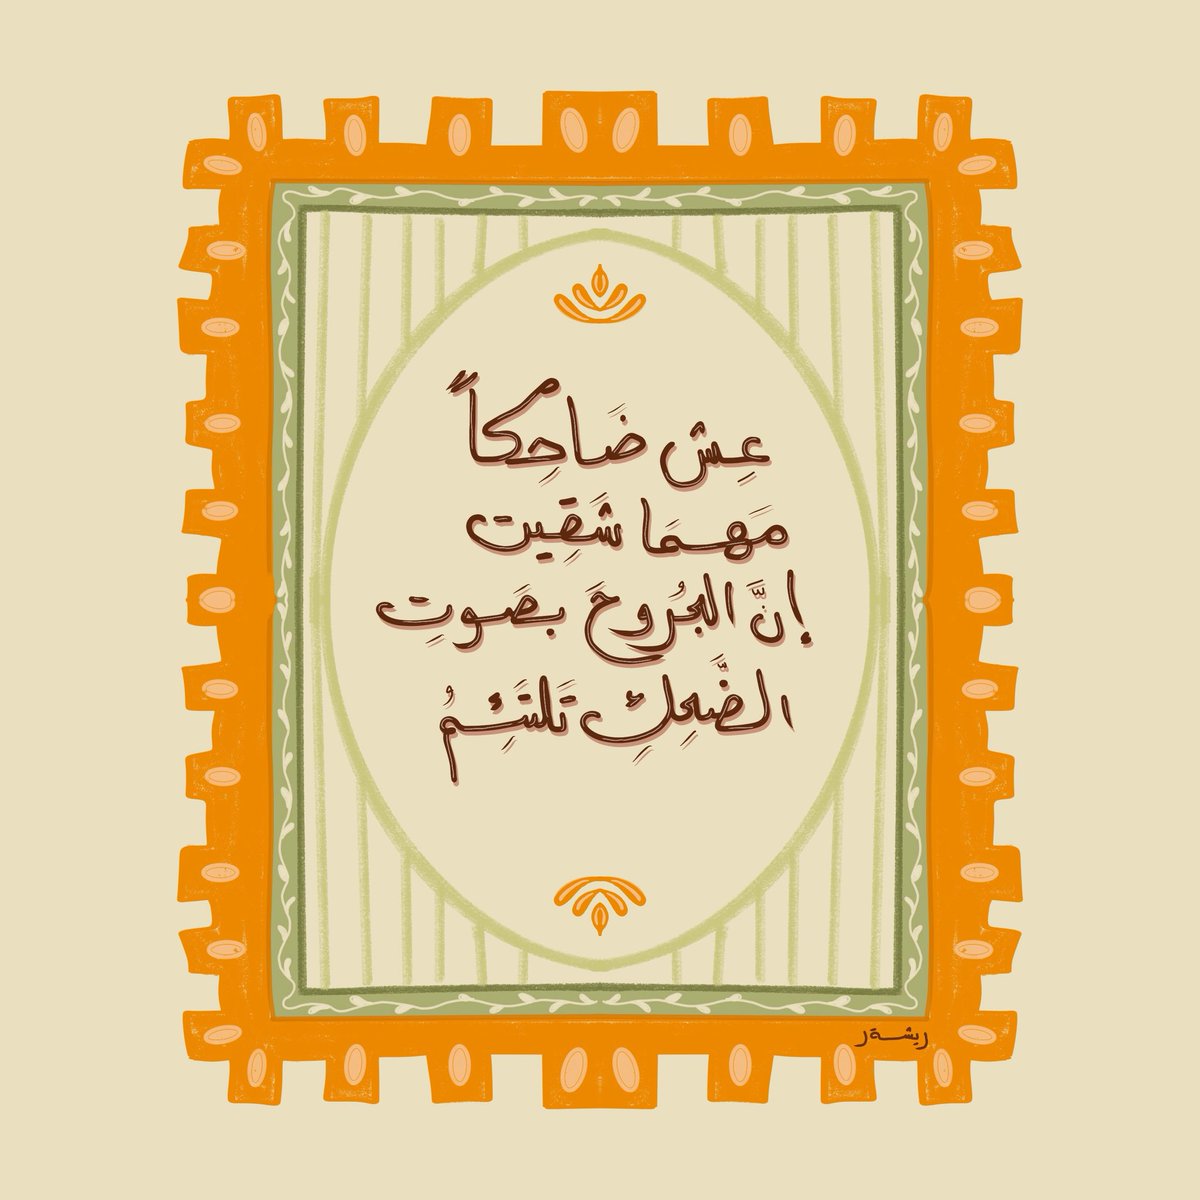 عِش ضَاحِكاً
مَهمَا شَقِيت
إنَّ الجُروحَ بصَوتِ
الضَّحِكِ تَلتَئِمُ
ريشة ر